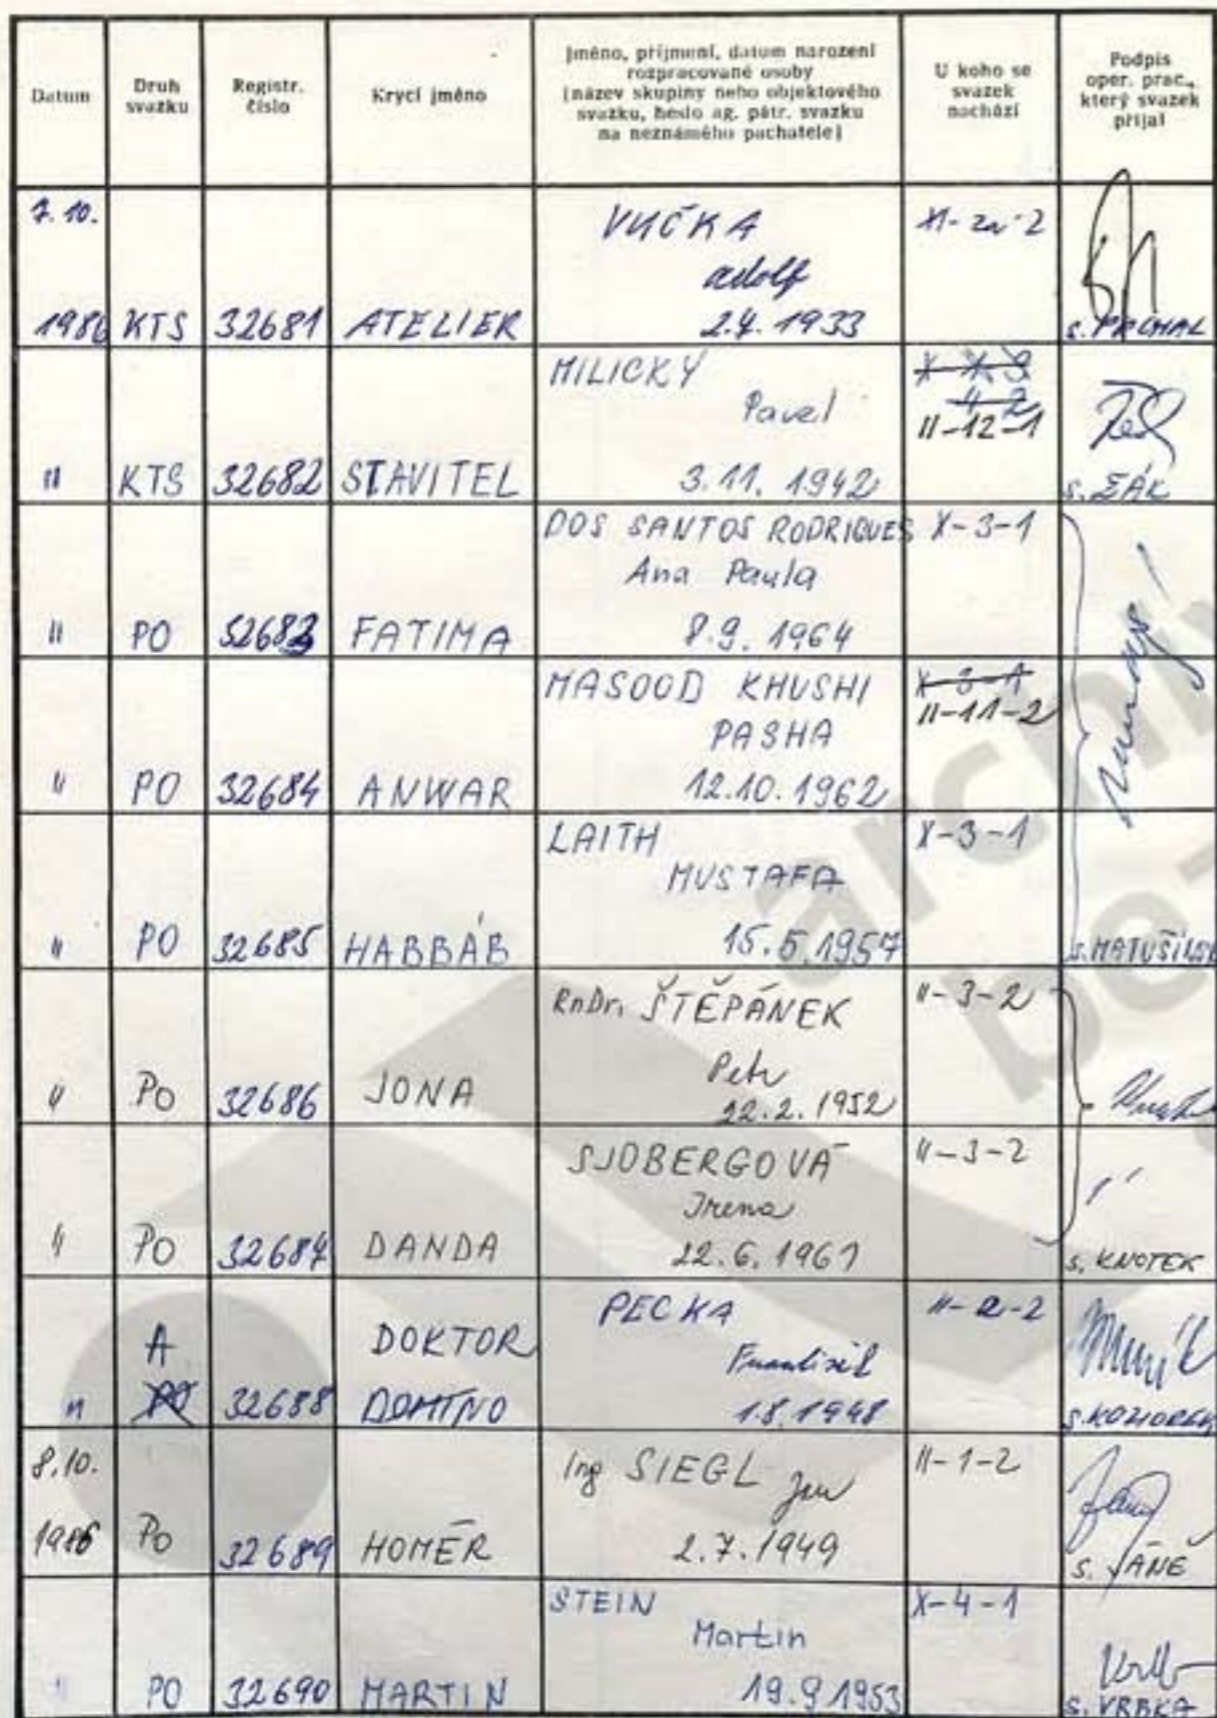 Datum
Druh
svazku
Registr.
číslo
Krycí jméno
Jméno, příjmení, datum narození
rozpracované osoby
(název skupiny nebo objektového
svazku, heslo ag. pátr. svazku
na neznámého pachatele)
U koho se
svazek
nachází
Podpis
oper. prac.,
který svazek
přijal
7. 10.
1986 KTS 32681 ATELIER
VUČKA
Adolf
2.4. 1933
XI-2a-2
s. PRCHAL
" KTS 32682 STAVITEL
MILICKÝ
Pavel
3. 11. 1942
II-12-1
s. ŽÁK
" PO 32683 FATIMA
DOS SANTOS RODRIGUES
Ana Paula
8.9. 1964
X-3-1
" PO 32684 ANWAR
MASOOD KHUSHI
PASHA
12.10.1962
X-3-1
II-11-2
" PO 32685 HABBÁB
LAITH
MUSTAFA
15.5.1957
X-3-1
" PO 32686 JONA
RnDr. ŠTĚPÁNEK
Petr
22.2.1952
II-3-2
" PO 32687 DANDA
SJOBERGOVÁ
Irena
22.6.1961
II-3-2
s. KNOTEK
A
PO
" 32688
DOKTOR
DOMINO
PECKA
František
1.8.1948
8.10.
1986 PO 32689 HOMÉR
Ing SIEGL Jan
2.7.1949
II-1-2
" PO 32690 MARTIN
STEIN
Martin
19.9 1953
X-4-1
s. VRBKA